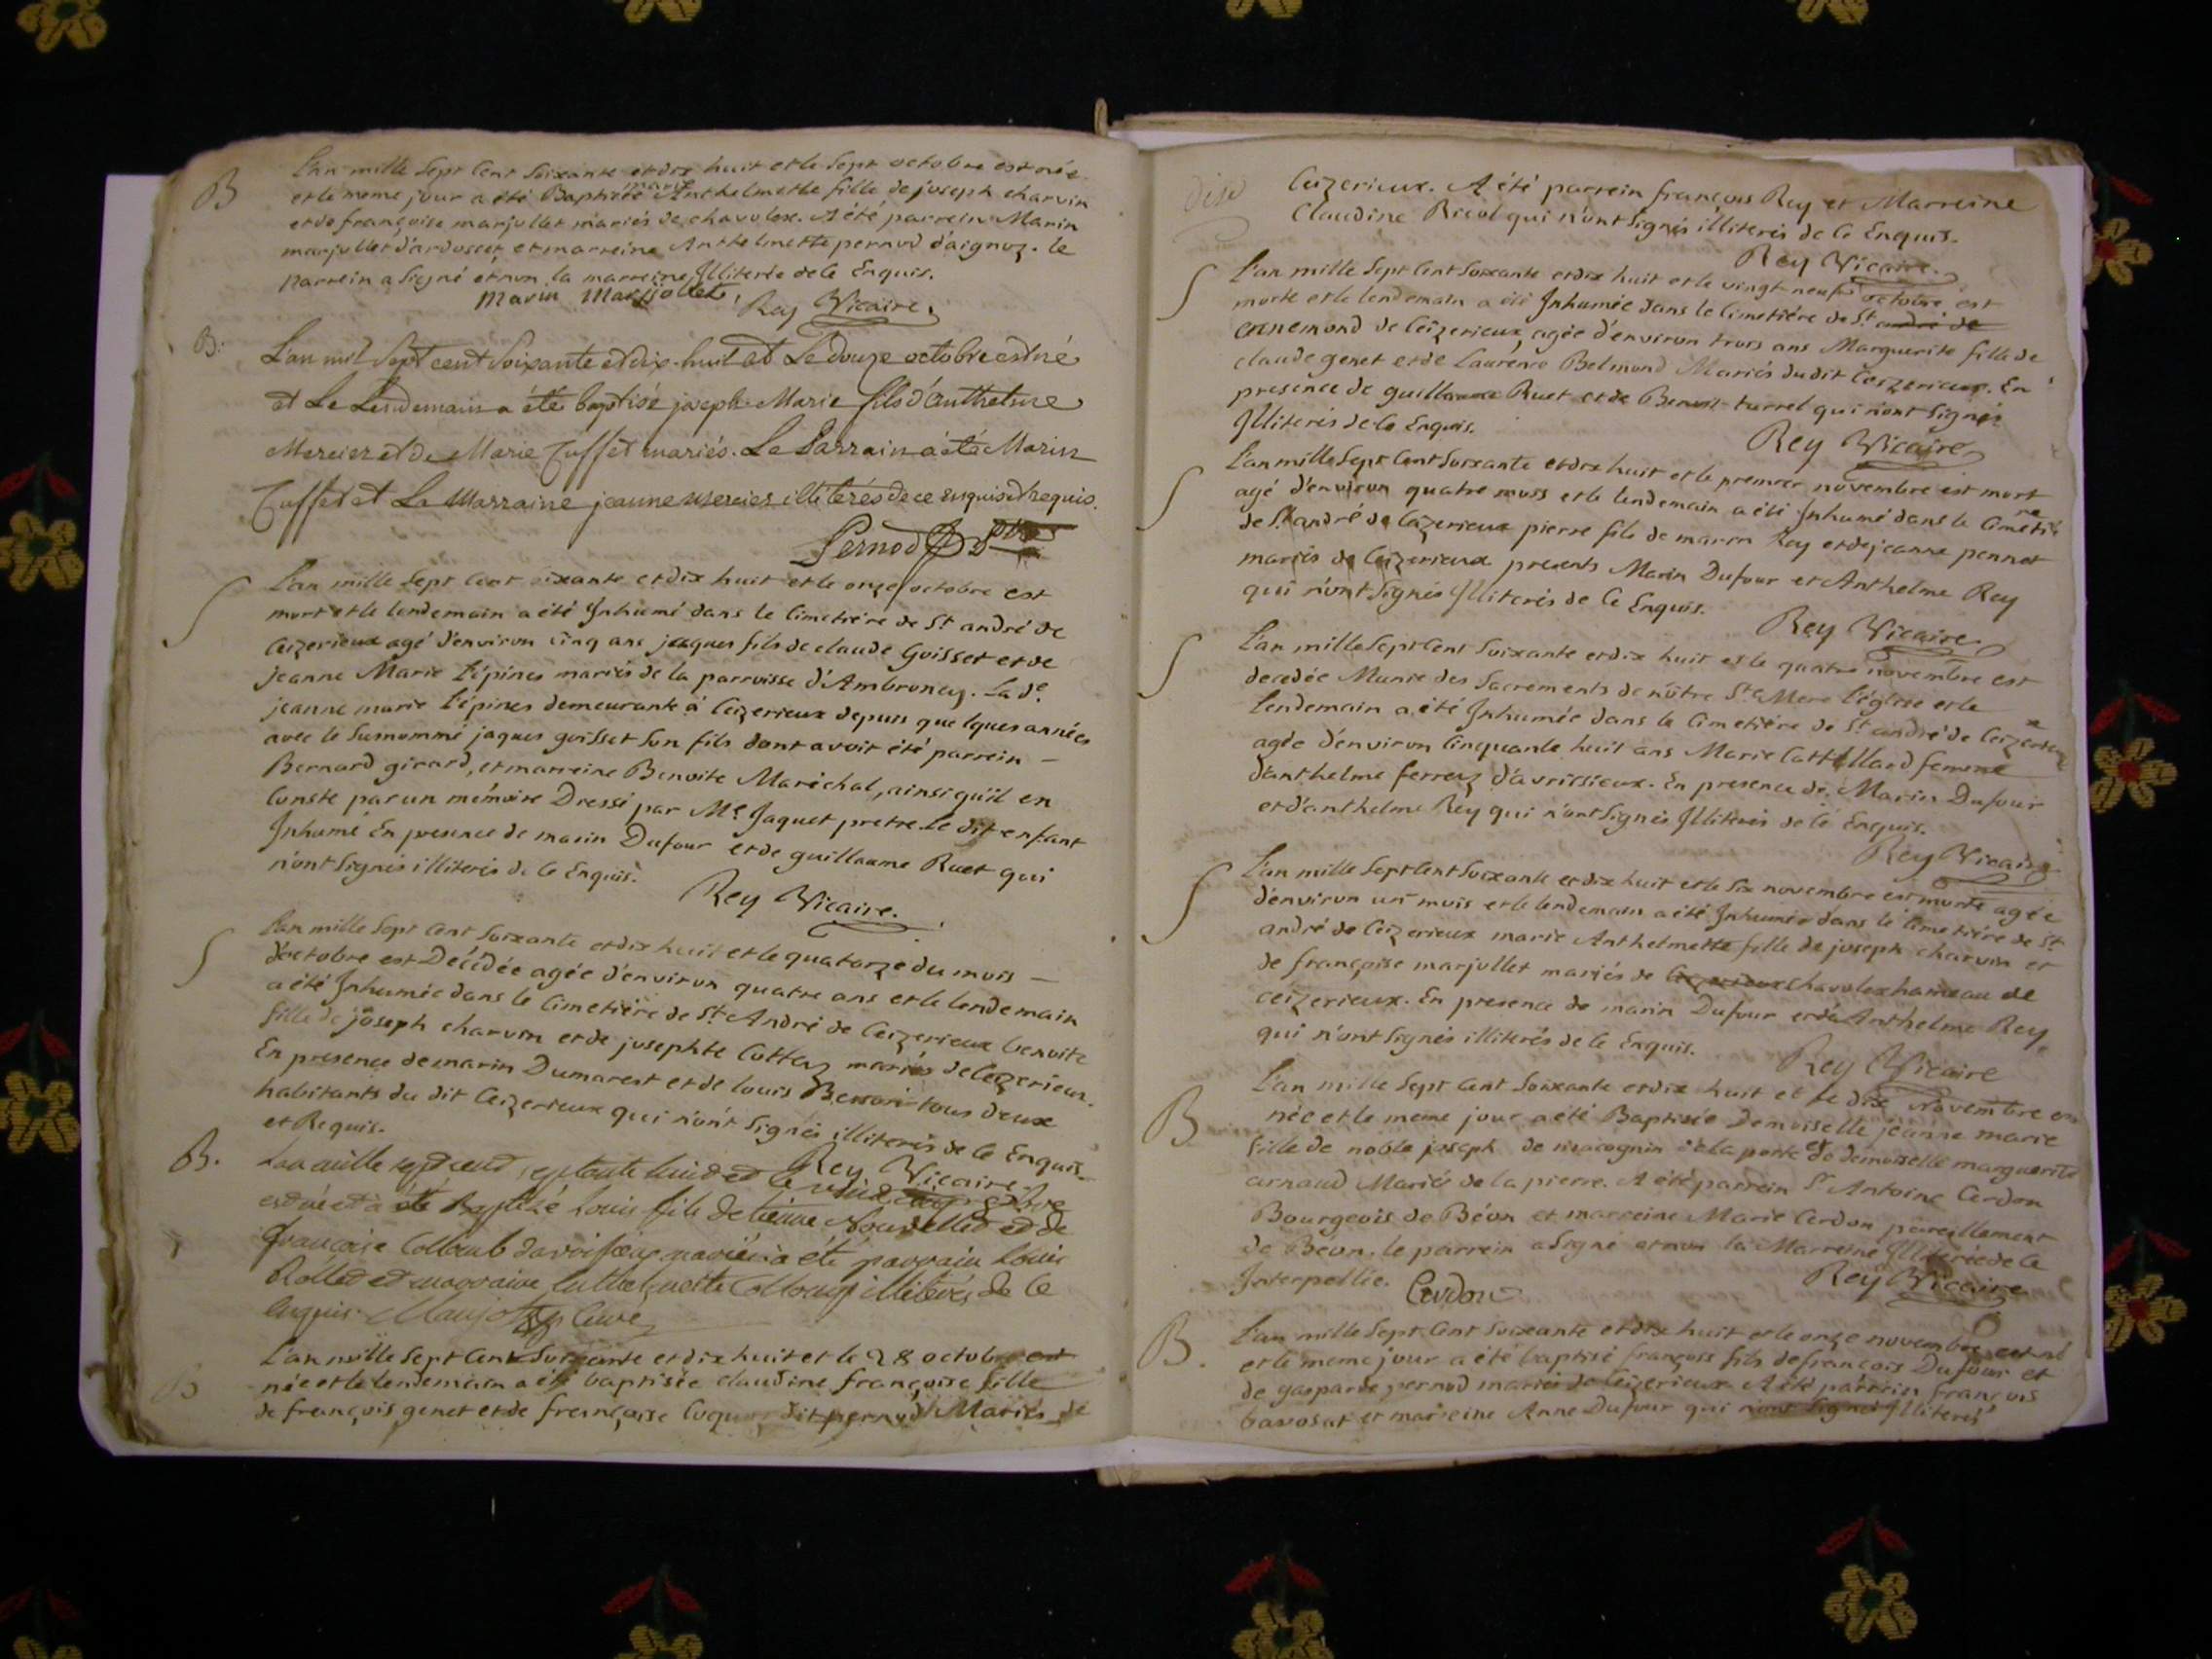 B
L'an mille Sept Cent Soixante et dix huit et le Sept octobre est née
et le meme jour a été Baptisée marie Anthelmette fille de joseph charvin
et de françoise marjollet mariés de chavolex. A été parrein Marin
marjollet d'ardosset, et marreine Anthelmette pernod d'aignoz. le
parrein a Signé et non la marreine Illiterée de ce Enquis.
Marin Marjollet. Rey Vicaire.
B.
L'an mil Sept cent Soixante et dix-huit et Le douze octobre est né
et Le Lendemain a été baptisé joseph-Marie fils d'anthelme
Mercier et de Marie Tuffet mariés. Le Parrain a été Marin
Tuffet et La Marraine jeanne mercier illiterés de ce enquis et requis.
Pernod
S
L'an mille Sept Cent Soixante et dix huit et le onze octobre est
mort et le lendemain a été Inhumé dans le Cimetiére de St andré de
Ceizerieux agé d'environ cinq ans jaques fils de claude Goisset et de
jeanne Marie L'épines mariés de la parroisse d'Ambronay. La de.
jeanne marie L'épines demeurante à Ceizerieux depuis quelques années
avec le Susnommé jaques goisset Son fils dont avoit été parrein –
Bernard girard, et marreine Benoite Maréchal, ainsi qu'il en
Conste par un mémoire Dressé par Me. Jaquet pretre. Le dit enfant
Inhumé En presence de marin Dufour et de guillaume Ruet qui
n'ont Signés illiterés de Ce Enquis.
Rey Vicaire.
S
L'an mille Sept Cent Soixante et dix huit et le quatorze du mois –
d'octobre est Décédée agée d'environ quatre ans et le lendemain
a été Inhumée dans le Cimetiére de St. André de Ceizerieux benoite
fille de joseph charvin et de josephte Cottaz mariés de Ceizerieux.
En presence de marin Dumarest et de louis Benoni tous deux
habitants du dit Ceizerieux qui n'ont Signés illiterés de Ce Enquis
et Requis.
Rey Vicaire.
B.
L'an mille sept cent septante huit et le 8bre
est né et a été Baptisé louis fils detienne Nouvellet et de
françoise Colloub davrisieux mariés a été parrain louis
Rollet et marraine Anthelmette Colloup illiterés de Ce
Enquis. Curé
B
L'an mille Sept Cent Soixante et dix huit et le 28 octobre est
née et le lendemain a été baptisée claudine françoise fille
de françois genet et de françoise dit pernod Mariés de
Ceizerieux. A été parrein françois Rey et Marreine
Claudine Ricol qui n'ont Signés illiterés de Ce Enquis.
Rey Vicaire.
S
L'an mille Sept Cent Soixante et dix huit et le vingt neuf octobre est
morte et le lendemain a été Inhumée dans le Cimetiére de St. andré de
ennemond de Ceizerieux, agée d'environ trois ans Marguerite fille de
claude genet et de Laurence Belmond Mariés dudit Ceizerieux. En
presence de guillaume Ruet et de Benoit turrel qui n'ont Signés
Illiterés de Ce Enquis.
Rey Vicaire
S
L'an mille Sept Cent Soixante et dix huit et le premier novembre est mort
agé d'environ quatre mois et le lendemain a été Inhumé dans le Cimetiére
de St. andré de Ceizerieux pierre fils de marin Rey et de jeanne pennet
mariés de Ceizerieux presents Marin Dufour et Anthelme Rey
qui n'ont Signés Illiterés de Ce Enquis.
Rey Vicaire
S
L'an mille Sept Cent Soixante et dix huit et le quatre novembre est
decedée Munie des Sacrements de nôtre Ste Mere l'église et le
Lendemain a été Inhumée dans le Cimetiére de St andré de Ceizerieux
agée d'environ Cinquante huit ans Marie Cattilland femme
d'anthelme ferraz d'avrissieux. En presence de Marin Dufour
et d'anthelme Rey qui n'ont Signés Illiterés de Ce Enquis.
Rey Vicaire
S
L'an mille Sept Cent Soixante et dix huit et le Six novembre est morte agée
d'environ un mois et le lendemain a été Inhumée dans le Cimetiére de St.
andré de Ceizerieux marie Anthelmette fille de joseph charvin et
de françoise marjollet mariés de Ceizerieux Chavolex hameau de
ceizerieux. En presence de marin Dufour et de Anthelme Rey
qui n'ont Signés illiterés de Ce Enquis.
Rey Vicaire
B
L'an mille Sept Cent Soixante et dix huit et le dix Novembre est
née et le meme jour a été Baptisée Demoiselle jeanne marie
fille de noble joseph de macognin de la porte et de demoiselle marguerite
arnaud Mariés de la pierre. A été parrein Sr Antoine Cerdon
Bourgeois de Béon et marreine Marie Cerdon pareillement
de Beon. le parrein a Signé et non la Marreine Illiterée de Ce
Interpellée. Cerdon Rey Vicaire
B.
L'an mille Sept Cent Soixante et dix huit et le onze novembre est né
et le meme jour a été baptisé françois fils de françois Dufour et
de gasparde pernod mariés de Ceizerieux A été parrein françois
bavosat et marreine Anne Dufour qui n'ont Signés Illiterés